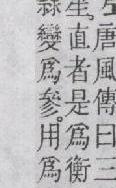 唐風傳曰三
生直者是爲衡
變爲參。用爲